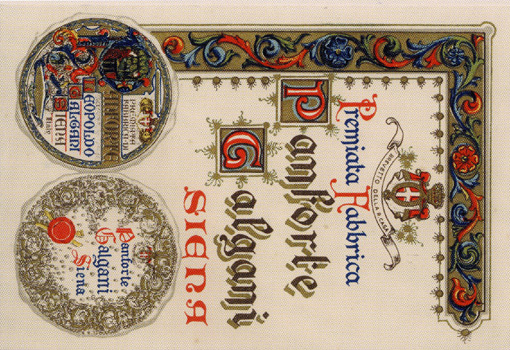 BREVETTO DELLA R. CASA
Premiata Fabbrica
Panforte
Galgani
SIENA
PANFORTE
LEOPOLDO
GALGANI
SIENA
Panforte
Galgani
Siena